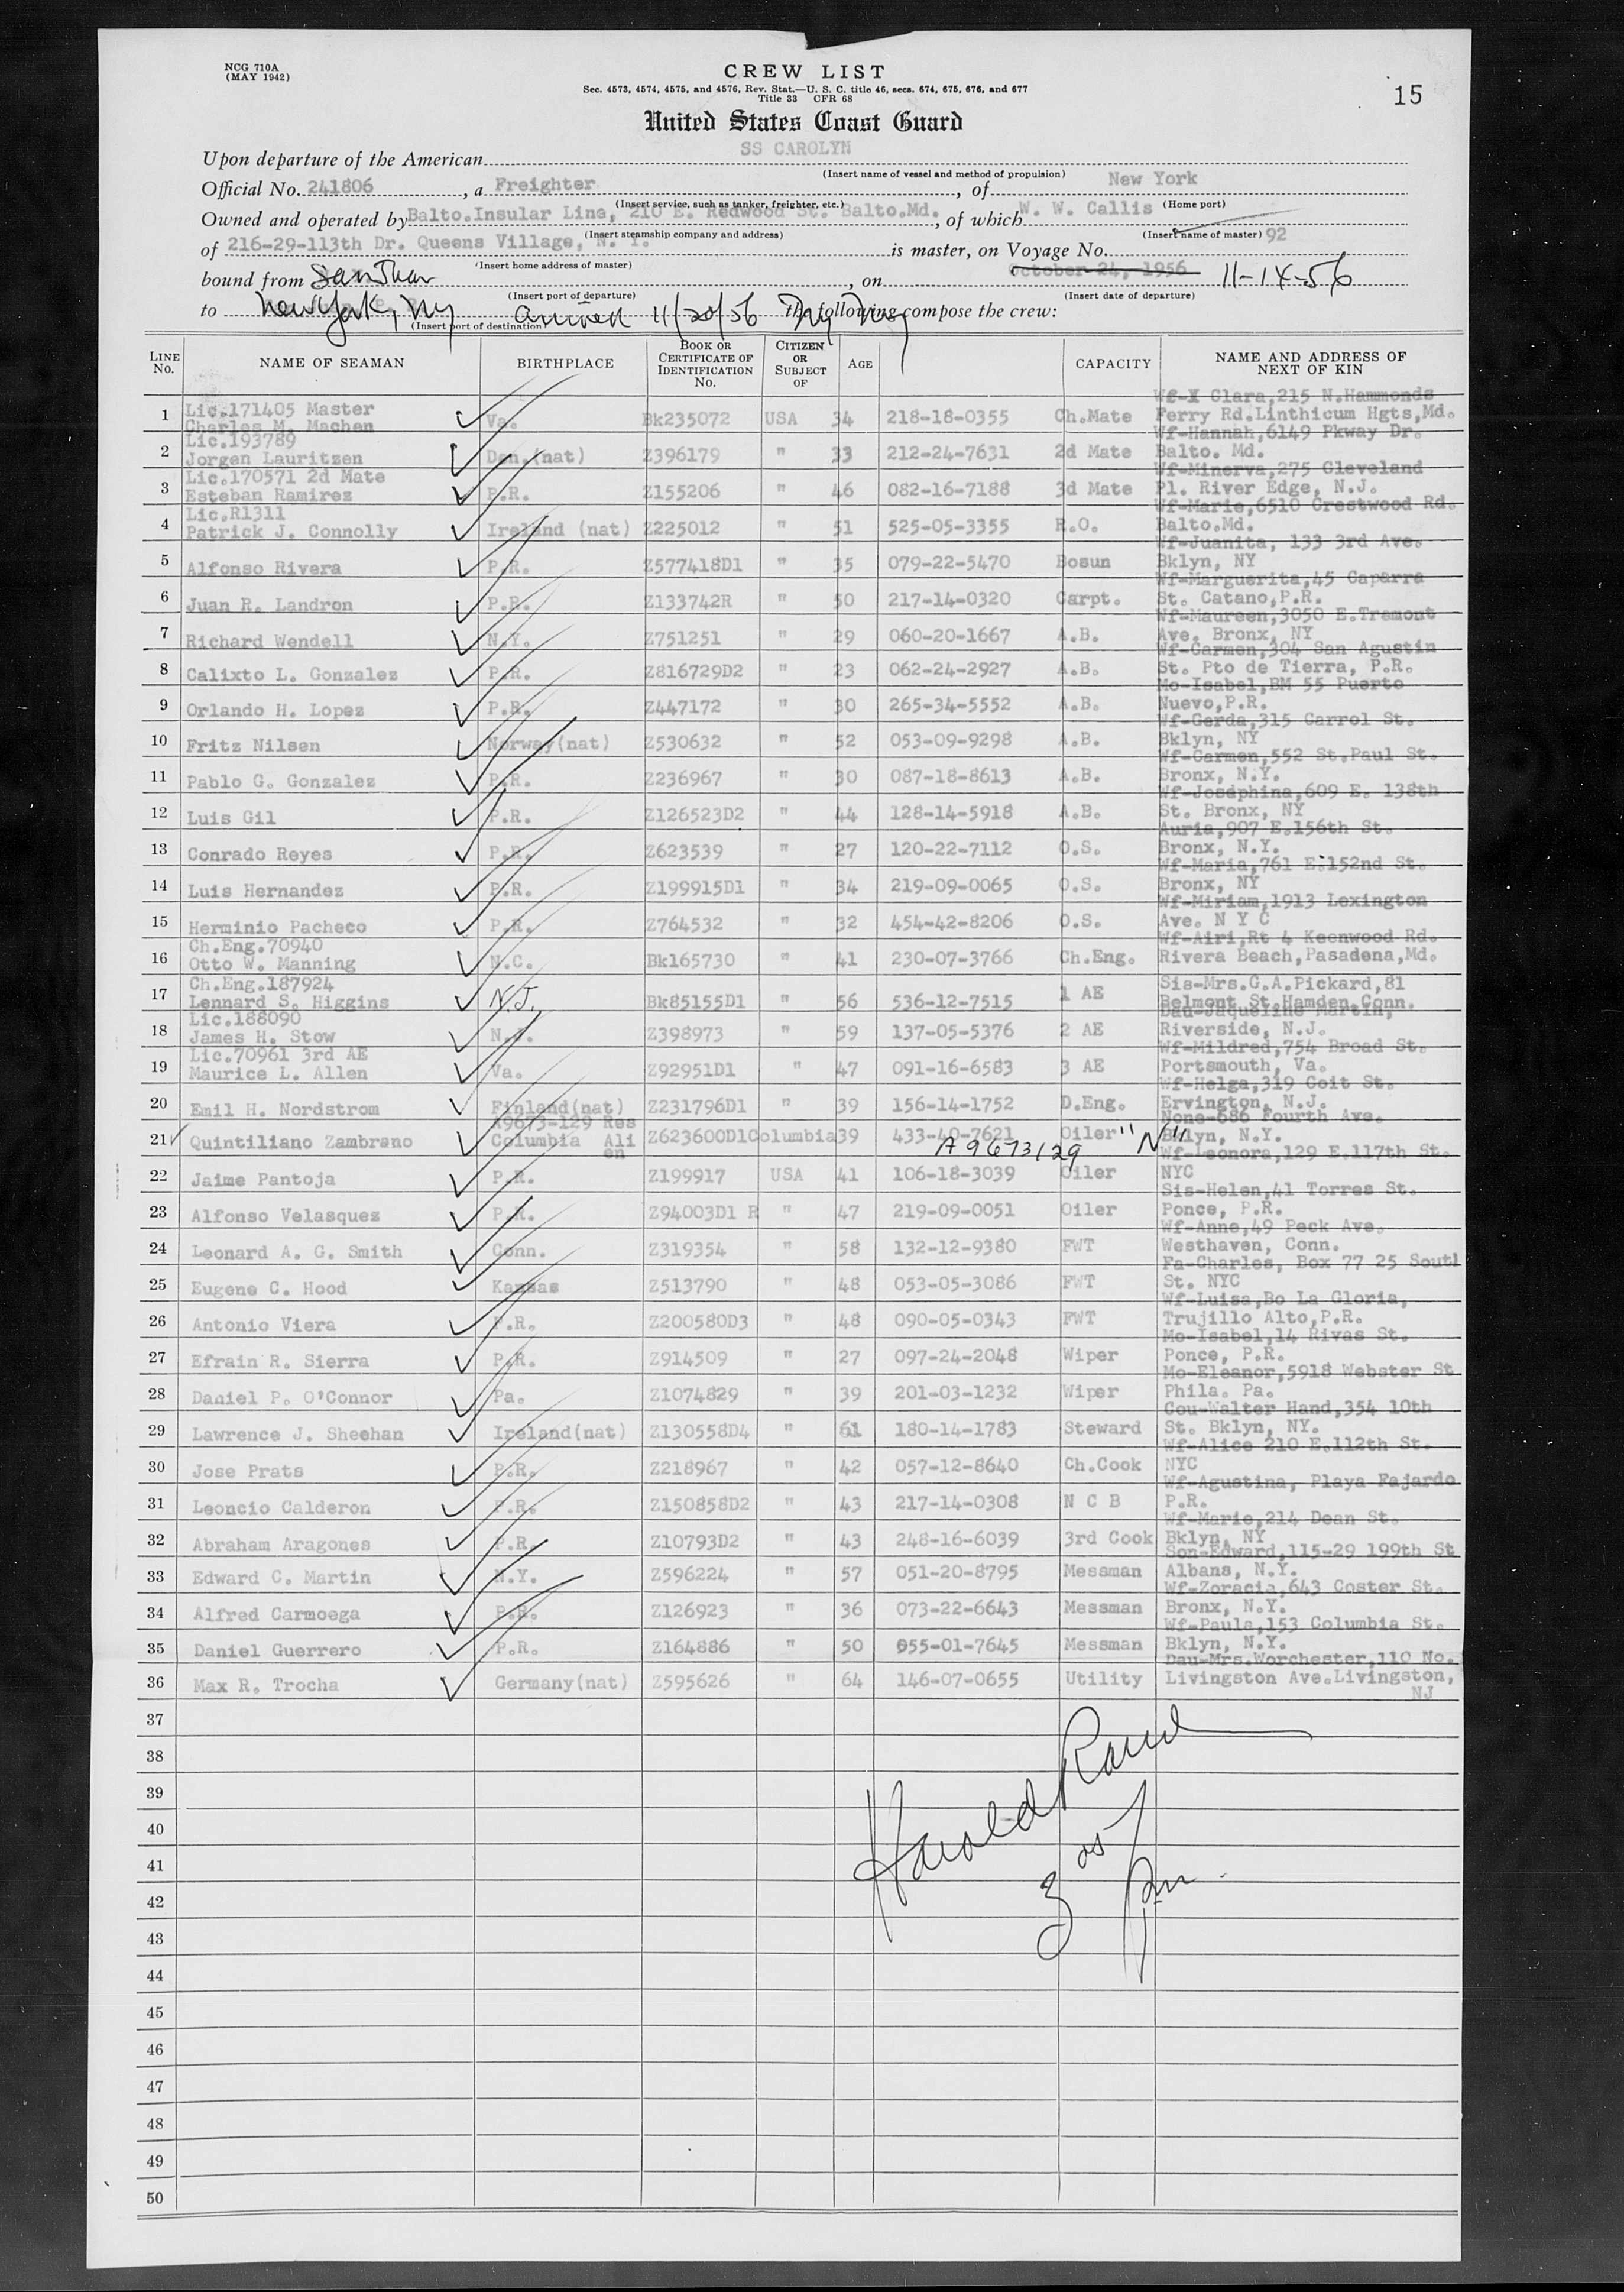 NCG 710A
(MAY 1942)
CREW LIST
Sec. 4573, 4574, 4575, and 4576, Rev. Stat.—U. S. C. title 46, secs. 674, 675, 676, and 677
Title 33 CFR 68
15
United States Coast Guard
Upon departure of the American SS CAROLYN
(Insert name of vessel and method of propulsion)
Official No. 241806, a Freighter, of New York
(Insert service, such as tanker, freighter, etc.) (Home port)
Owned and operated by Balto.Insular Line, 210 E. Redwood St. Balto.Md., of which W. W. Callis
(Insert steamship company and address) (Insert name of master)
of 216-29-113th Dr. Queens Village, N. Y. is master, on Voyage No. 92
(Insert home address of master)
bound from San Juan, on October 24, 1956 11-14-56
(Insert port of departure) (Insert date of departure)
to New York, NY arrived 11/20/56 the following compose the crew:
(Insert port of destination)
LINE No. NAME OF SEAMAN BIRTHPLACE BOOK OR CERTIFICATE OF IDENTIFICATION No. CITIZEN OR SUBJECT OF AGE CAPACITY NAME AND ADDRESS OF NEXT OF KIN
Lic.171405 Master Wf-X Clara,215 N.Hammonds
1 Charles M. Machen Va. Bk235072 USA 34 218-18-0355 Ch.Mate Ferry Rd.Linthicum Hgts,Md.
Lic.193789 Wf-Hannah,6149 Pkway Dr.
2 Jorgen Lauritzen Den.(nat) Z396179 " 33 212-24-7631 2d Mate Balto. Md.
Lic.170571 2d Mate Wf-Minerva,275 Cleveland
3 Esteban Ramirez P.R. Z155206 " 46 082-16-7188 3d Mate Pl. River Edge, N.J.
Lic.R1311 Wf-Marie,6510 Crestwood Rd.
4 Patrick J. Connolly Ireland (nat) Z225012 " 51 525-05-3355 R.O. Balto.Md.
Wf-Juanita, 133 3rd Ave.
5 Alfonso Rivera P.R. Z577418D1 " 35 079-22-5470 Bosun Bklyn, NY
Wf-Marguerita,45 Caparra
6 Juan R. Landron P.R. Z133742R " 50 217-14-0320 Carpt. St. Catano,P.R.
Wf-Maureen,3050 E.Tremont
7 Richard Wendell N.Y. Z751251 " 29 060-20-1667 A.B. Ave. Bronx, NY
Wf-Carmen,304 San Agustin
8 Calixto L. Gonzalez P.R. Z816729D2 " 23 062-24-2927 A.B. St. Pto de Tierra, P.R.
Mo-Isabel,BM 55 Puerto
9 Orlando H. Lopez P.R. Z447172 " 30 265-34-5552 A.B. Nuevo,P.R.
Wf-Gerda,315 Carrol St.
10 Fritz Nilsen Norway(nat) Z530632 " 52 053-09-9298 A.B. Bklyn, NY
Wf-Carmen,552 St.Paul St.
11 Pablo G. Gonzalez P.R. Z236967 " 30 087-18-8613 A.B. Bronx, N.Y.
Wf-Josephina,609 E. 138th
12 Luis Gil P.R. Z126523D2 " 44 128-14-5918 A.B. St. Bronx, NY
Auria,907 E.156th St.
13 Conrado Reyes P.R. Z623539 " 27 120-22-7112 O.S. Bronx, N.Y.
Wf-Maria,761 E.152nd St.
14 Luis Hernandez P.R. Z199915D1 " 34 219-09-0065 O.S. Bronx, NY
Wf-Miriam,1913 Lexington
15 Herminio Pacheco P.R. Z764532 " 32 454-42-8206 O.S. Ave. N Y C
Ch.Eng.70940 Wf-Airi,Rt 4 Keenwood Rd.
16 Otto W. Manning N.C. Bk165730 " 41 230-07-3766 Ch.Eng. Rivera Beach,Pasadena,Md.
Ch.Eng.187924 Sis-Mrs.G.A.Pickard,81
17 Lennard S. Higgins N.J. Bk85155D1 " 56 536-12-7515 1 AE Belmont St.Hamden,Conn.
Lic.188090 Dau-Jaqueline Martin,
18 James H. Stow N.J. Z398973 " 59 137-05-5376 2 AE Riverside, N.J.
Lic.70961 3rd AE Wf-Mildred,754 Broad St.
19 Maurice L. Allen Va. Z92951D1 " 47 091-16-6583 3 AE Portsmouth, Va.
Wf-Helga,319 Coit St.
20 Emil H. Nordstrom Finland(nat) Z231796D1 " 39 156-14-1752 D.Eng. Ervington, N.J.
A9673-129 Res None-686 Fourth Ave.
21 Quintiliano Zambrano Columbia Ali en Z623600D1 Columbia 39 433-40-7621 Oiler "N" Bklyn, N.Y.
A9673129 Wf-Leonora,129 E.117th St.
22 Jaime Pantoja P.R. Z199917 USA 41 106-18-3039 Oiler NYC
Sis-Helen,41 Torres St.
23 Alfonso Velasquez P.R. Z94003D1 R " 47 219-09-0051 Oiler Ponce, P.R.
Wf-Anne,49 Peck Ave.
24 Leonard A. G. Smith Conn. Z319354 " 58 132-12-9380 FWT Westhaven, Conn.
Fa-Charles, Box 77 25 Soutl
25 Eugene C. Hood Kansas Z513790 " 48 053-05-3086 FWT St. NYC
Wf-Luisa,Bo La Gloria,
26 Antonio Viera P.R. Z200580D3 " 48 090-05-0343 FWT Trujillo Alto,P.R.
Mo-Isabel,14 Rivas St.
27 Efrain R. Sierra P.R. Z914509 " 27 097-24-2048 Wiper Ponce, P.R.
Mo-Eleanor,5918 Webster St
28 Daniel P. O'Connor Pa. Z1074829 " 39 201-03-1232 Wiper Phila. Pa.
Cou-Walter Hand,354 10th
29 Lawrence J. Sheehan Ireland(nat) Z130558D4 " 61 180-14-1783 Steward St. Bklyn, NY.
Wf-Alice 210 E.112th St.
30 Jose Prats P.R. Z218967 " 42 057-12-8640 Ch.Cook NYC
Wf-Agustina, Playa Fajardo
31 Leoncio Calderon P.R. Z150858D2 " 43 217-14-0308 N C B P.R.
Wf-Marie,214 Dean St.
32 Abraham Aragones P.R. Z10793D2 " 43 248-16-6039 3rd Cook Bklyn, NY
Son-Edward,115-29 199th St
33 Edward C. Martin N.Y. Z596224 " 57 051-20-8795 Messman Albans, N.Y.
Wf-Zoracia,643 Coster St.
34 Alfred Carmoega P.R. Z126923 " 36 073-22-6643 Messman Bronx, N.Y.
Wf-Paula,153 Columbia St.
35 Daniel Guerrero P.R. Z164886 " 50 055-01-7645 Messman Bklyn, N.Y.
Dau-Mrs.Worchester,110 No.
36 Max R. Trocha Germany(nat) Z595626 " 64 146-07-0655 Utility Livingston Ave.Livingston,
NJ
37
38
39
40
41
42
43
44
45
46
47
48
49
50
Harold